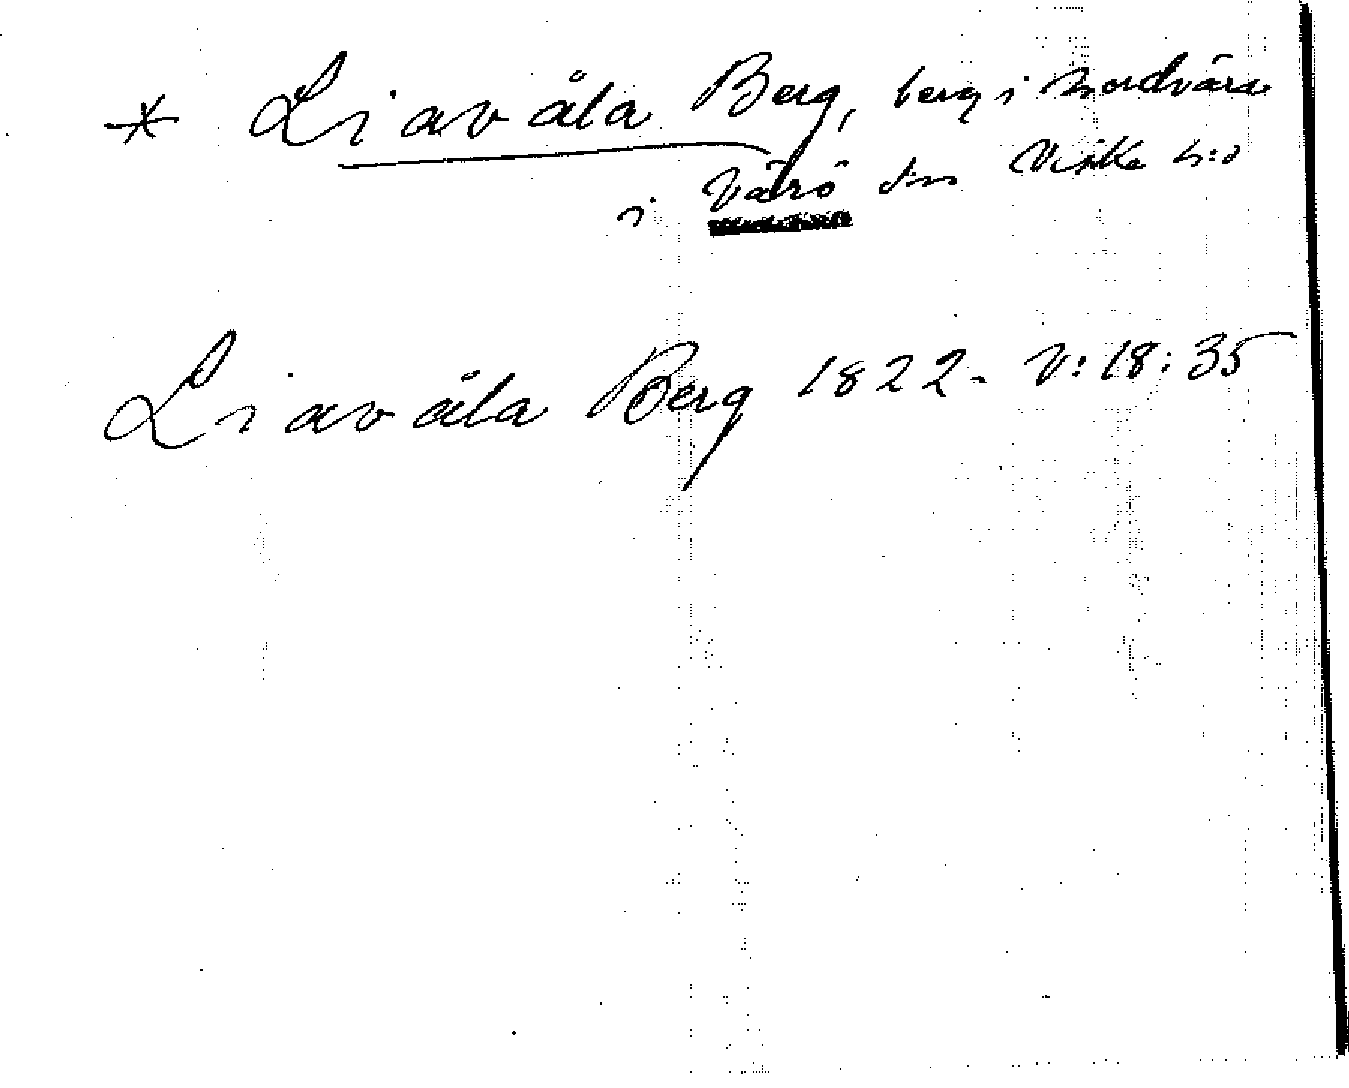 * Liavåla Berg, berg i Nordvära
i Värö sn Viske h:d
Liavåla Berg 1822. V:18:35